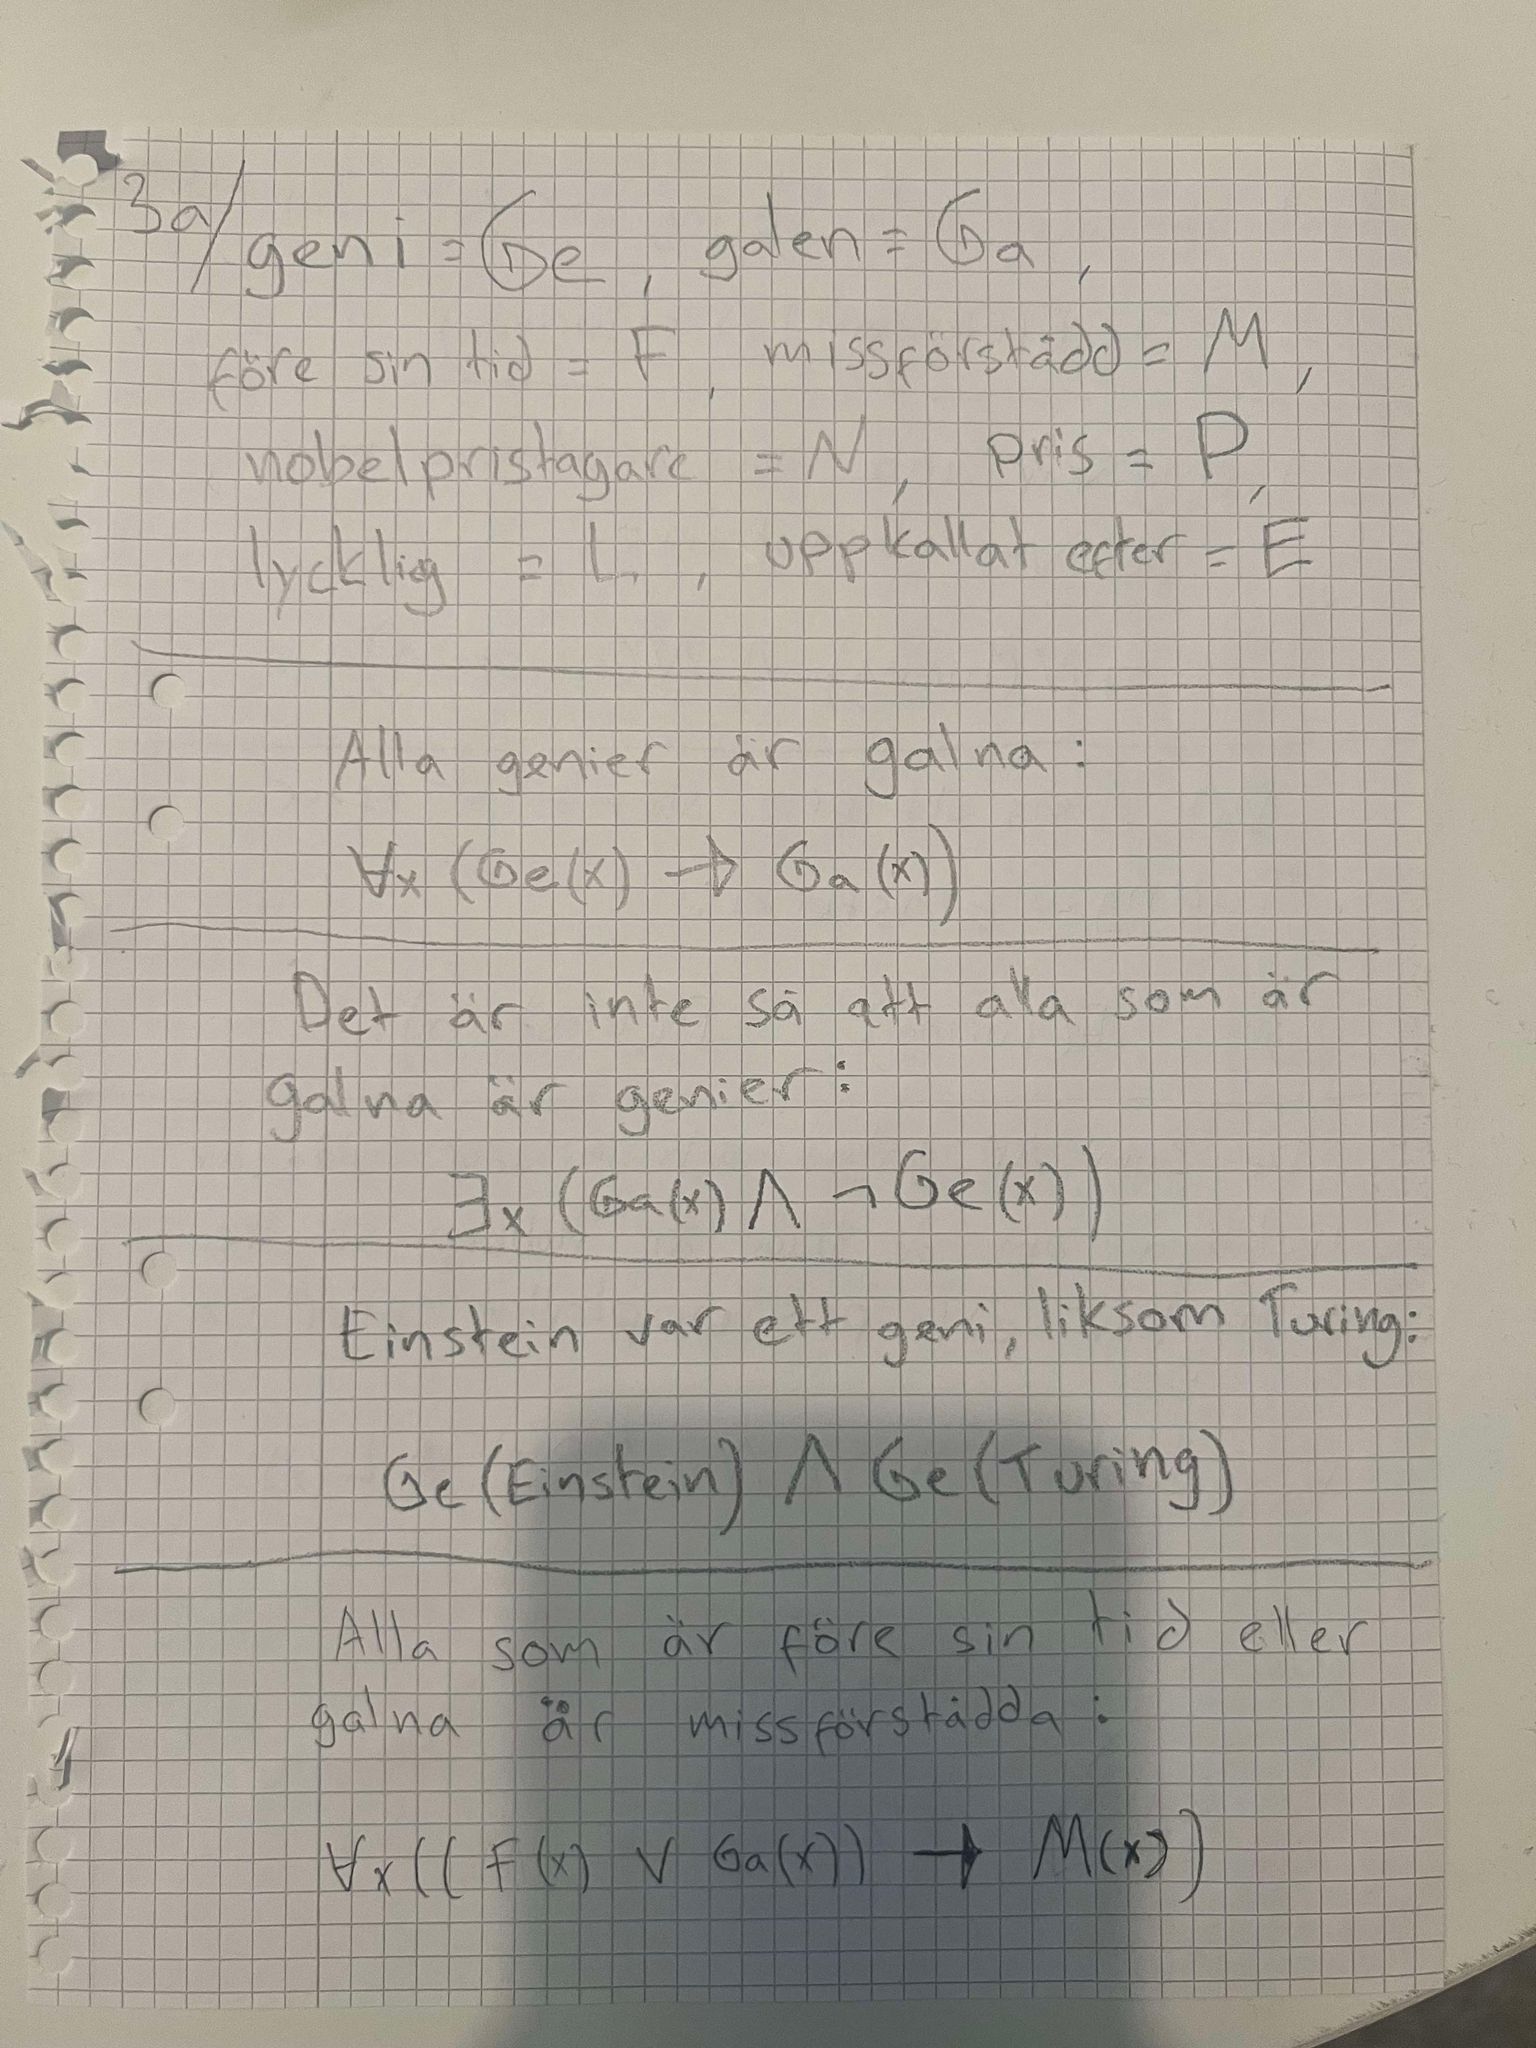 3a/ geni = Ge, galen = Ga,
före sin tid = F, missförstådd = M,
nobelpristagare = N, pris = P,
lycklig = L, uppkallat efter = E
Alla genier är galna:
∀x (Ge(x) → Ga(x))
Det är inte så att alla som är
galna är genier:
∃x (Ga(x) ∧ ¬Ge(x))
Einstein var ett geni, liksom Turing:
Ge(Einstein) ∧ Ge(Turing)
Alla som är före sin tid eller
galna är missförstådda:
∀x((F(x) ∨ Ga(x)) → M(x))